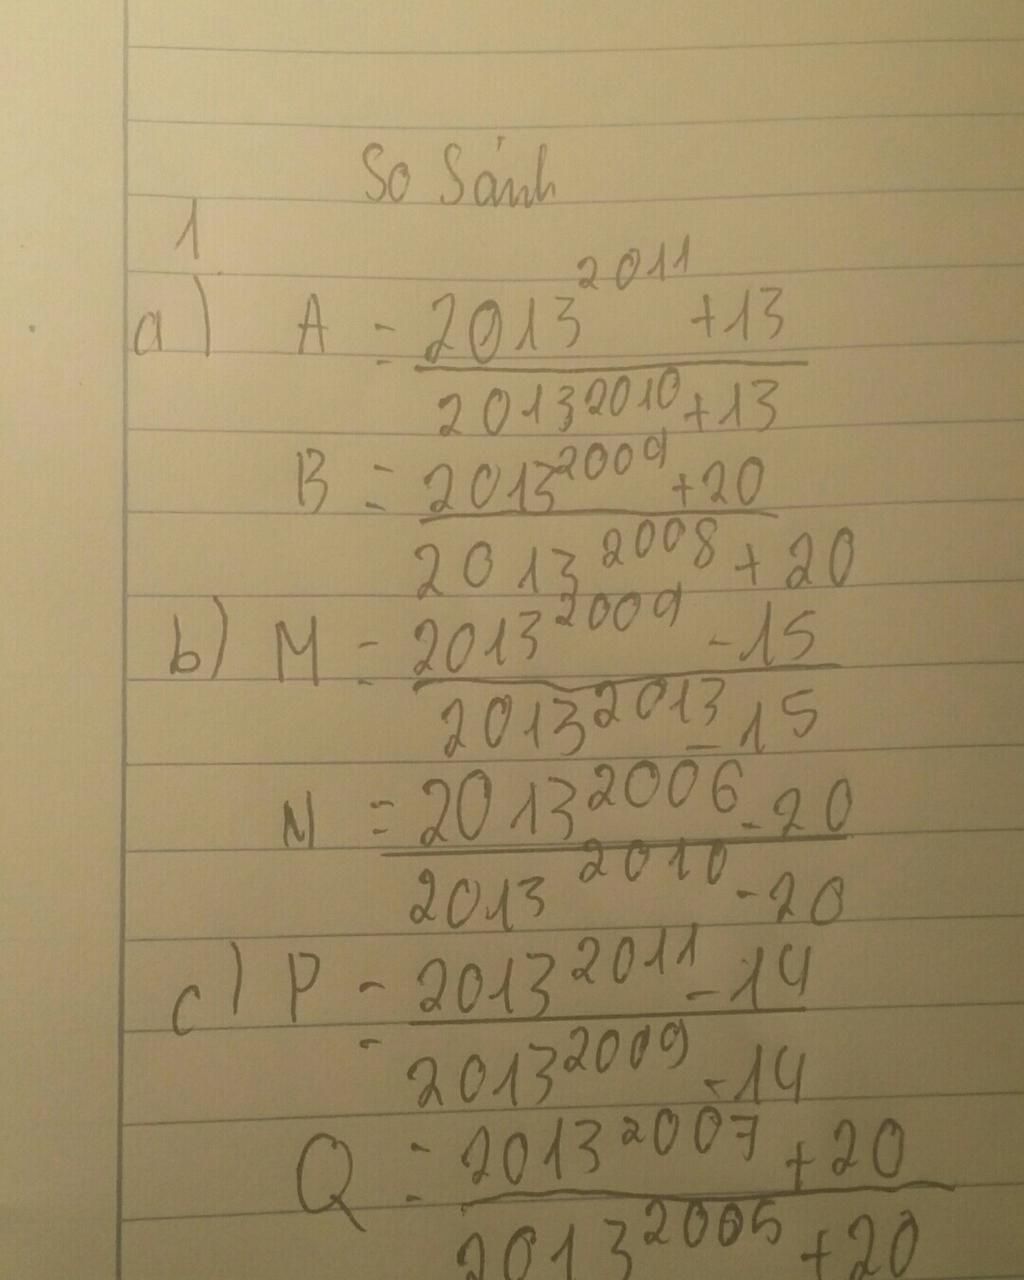 So Sánh
1
a) A = 2013^2011 + 13
2013^2010 + 13
B = 2013^2009 + 20
2013^2008 + 20
b) M = 2013^2009 - 15
2013^2013 - 15
N = 2013^2006 - 20
2013^2010 - 20
c) P = 2013^2011 - 14
2013^2009 - 14
Q = 2013^2007 + 20
2013^2005 + 20